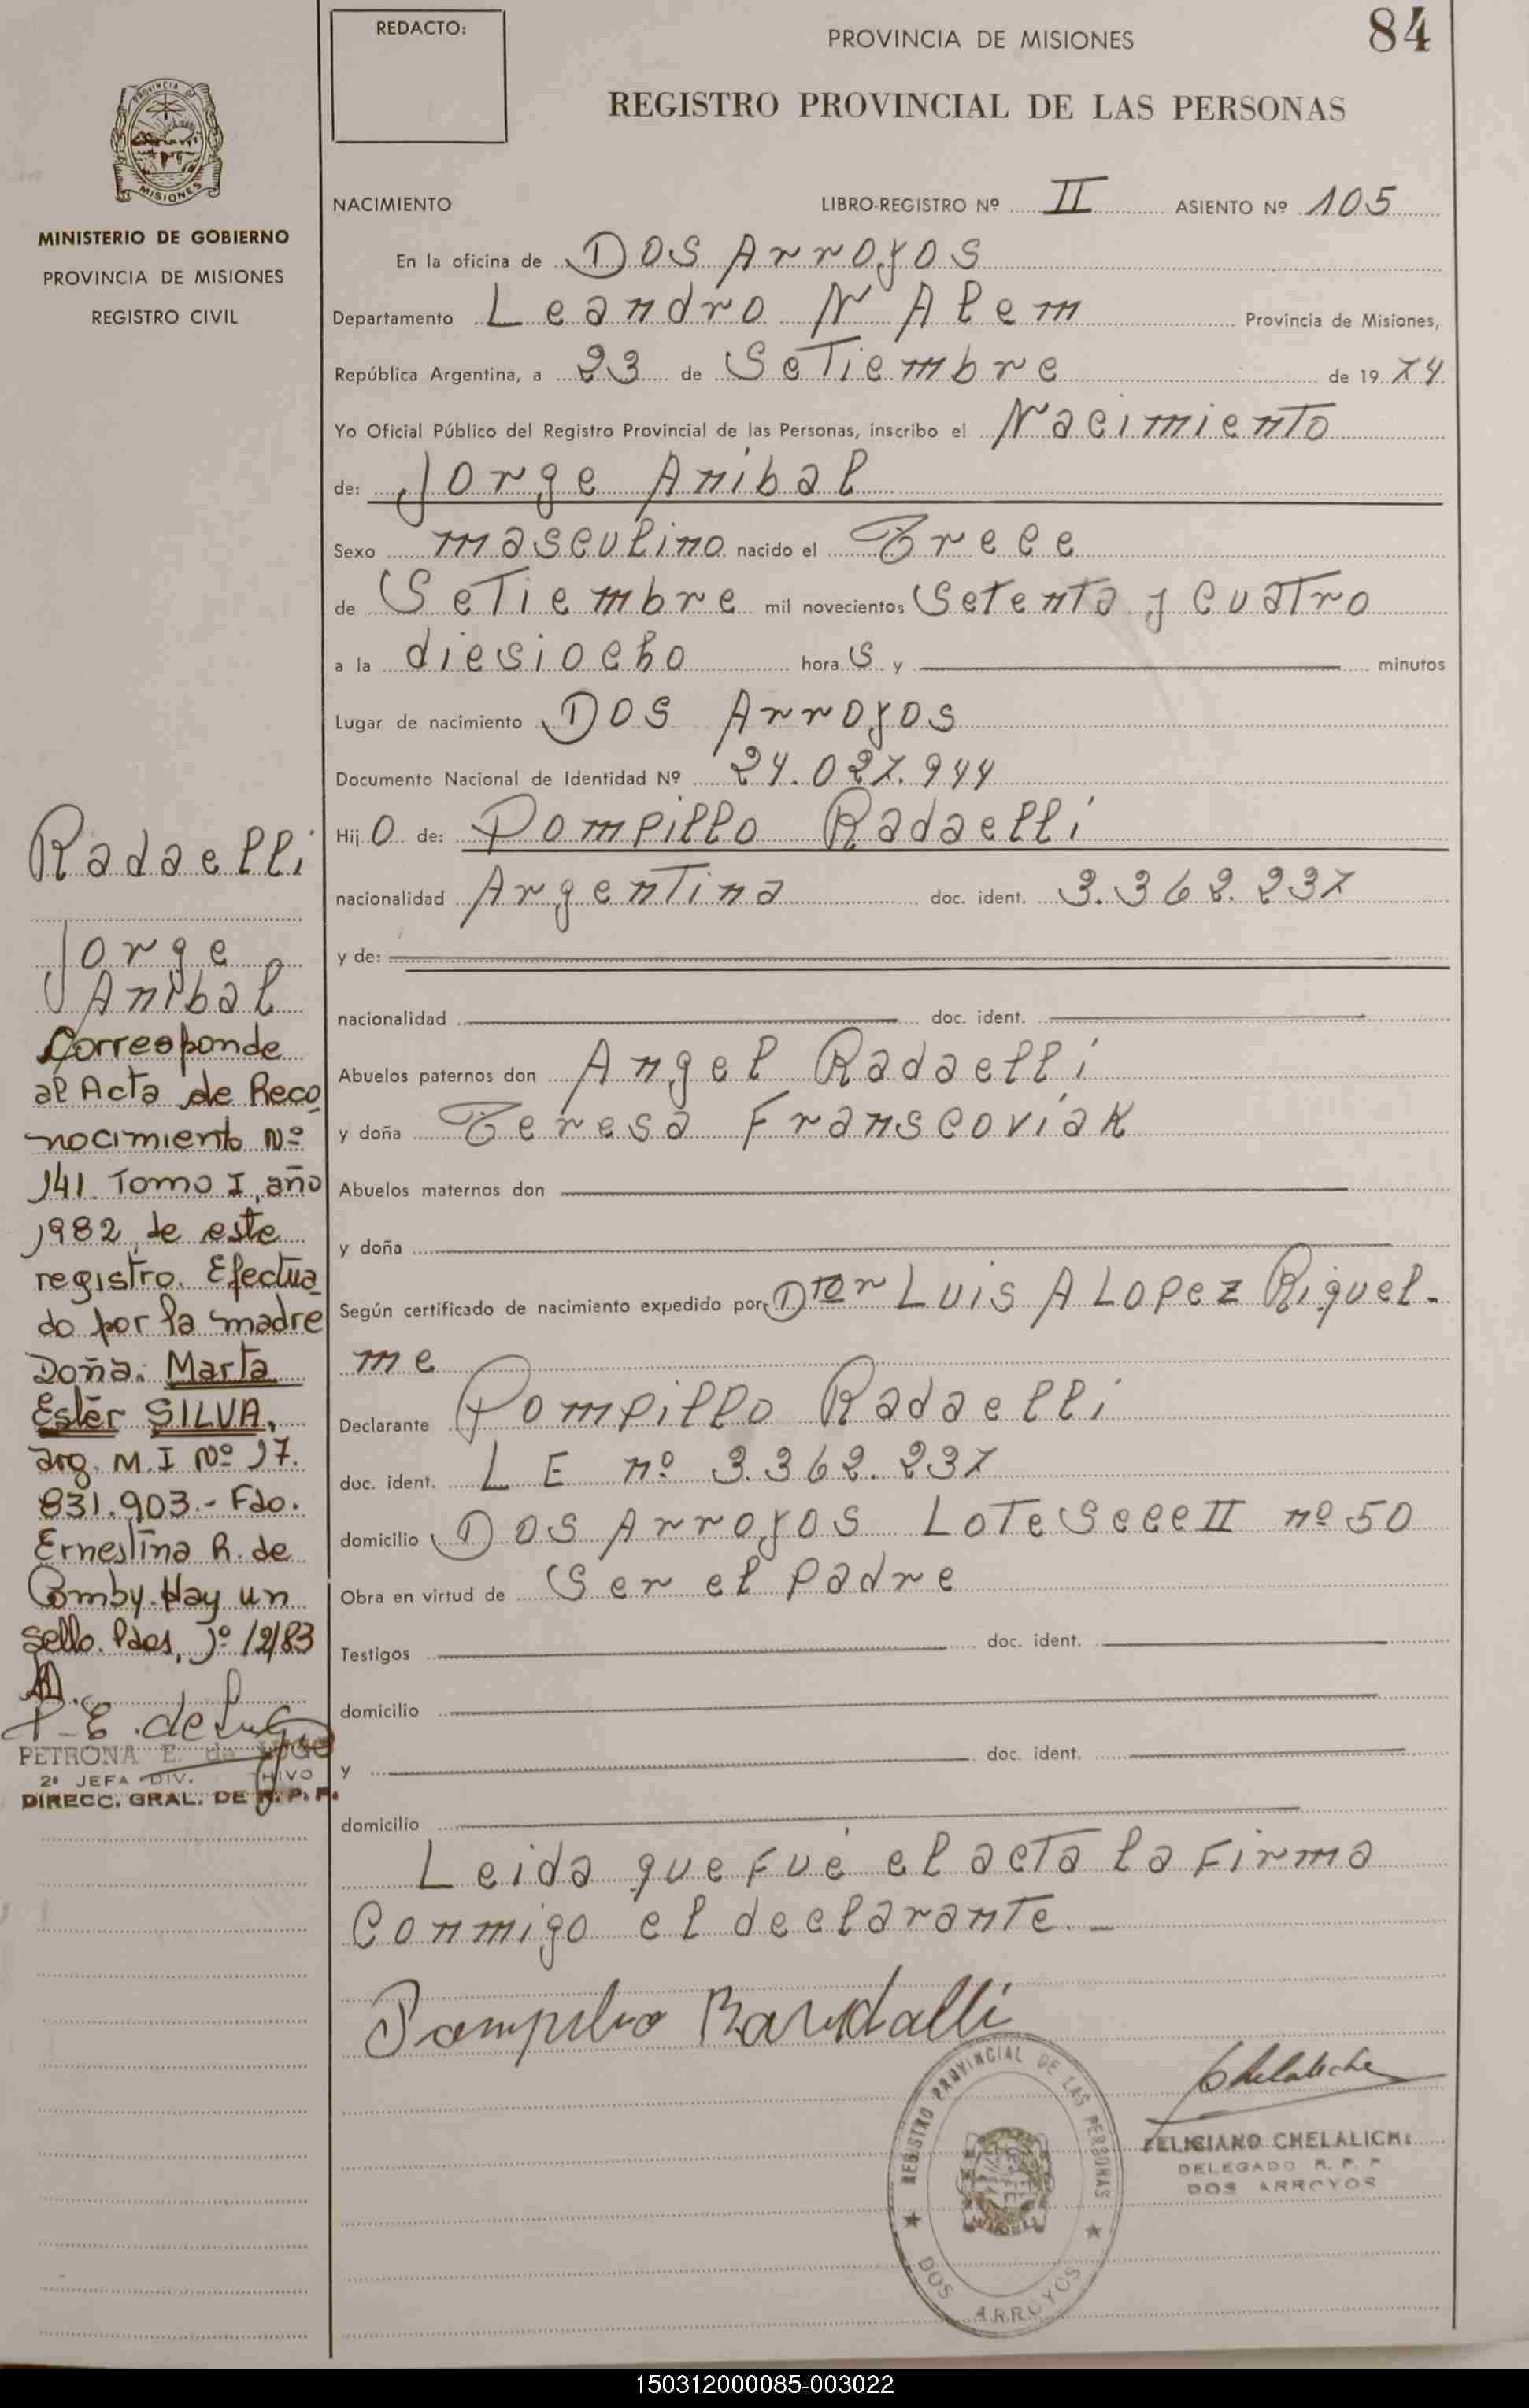 REDACTO:
PROVINCIA DE MISIONES
84
REGISTRO PROVINCIAL DE LAS PERSONAS
PROVINCIA DE
MISIONES
MINISTERIO DE GOBIERNO
PROVINCIA DE MISIONES
REGISTRO CIVIL
NACIMIENTO LIBRO-REGISTRO Nº II ASIENTO Nº 105
En la oficina de Dos Arroyos
Departamento Leandro N Alem Provincia de Misiones,
República Argentina, a 23 de SeTiembre de 1974
Yo Oficial Público del Registro Provincial de las Personas, inscribo el Nacimiento
de: Jorge Anibal
Sexo masculino nacido el Trece
de SeTiembre mil novecientos Setenta y cuatro
a la diesiocho horas y minutos
Lugar de nacimiento Dos Arroyos
Documento Nacional de Identidad Nº 24.027.944
Hijo de: Pompillo Radaelli
nacionalidad Argentina doc. ident. 3.362.237
y de:
nacionalidad doc. ident.
Abuelos paternos don Angel Radaelli
y doña Teresa Franscoviak
Abuelos maternos don
y doña
Según certificado de nacimiento expedido por Dtor Luis A Lopez Riquel-
me
Declarante Pompillo Radaelli
doc. ident. L E nº 3.362.237
domicilio Dos Arroyos Lote Secc II nº 50
Obra en virtud de Ser el Padre
Testigos doc. ident.
domicilio
y doc. ident.
domicilio
Leida que Fué el acta la Firma
Conmigo el declarante.-
Radaelli
Jorge
Anibal
Corresponde
al Acta de Reco
nocimiento Nº
141. Tomo I, año
1982, de este
registro. Efectua
do por la madre
Doña: Marta
Ester SILVA,
arg. M.I Nº 17.
831.903.- Fdo.
Ernestina R. de
Comby. Hay un
sello. Pdas, 1º 12/83
P. E. de Lugo
PETRONA E. de LUGO
2ª JEFA DIV. ARCHIVO
DIRECC. GRAL. DE R. P. P.
REGISTRO PROVINCIAL DE LAS PERSONAS
MISIONES
DOS ARROYOS
FELICIANO CHELALICHE
DELEGADO R. P. P
DOS ARROYOS
150312000085-003022